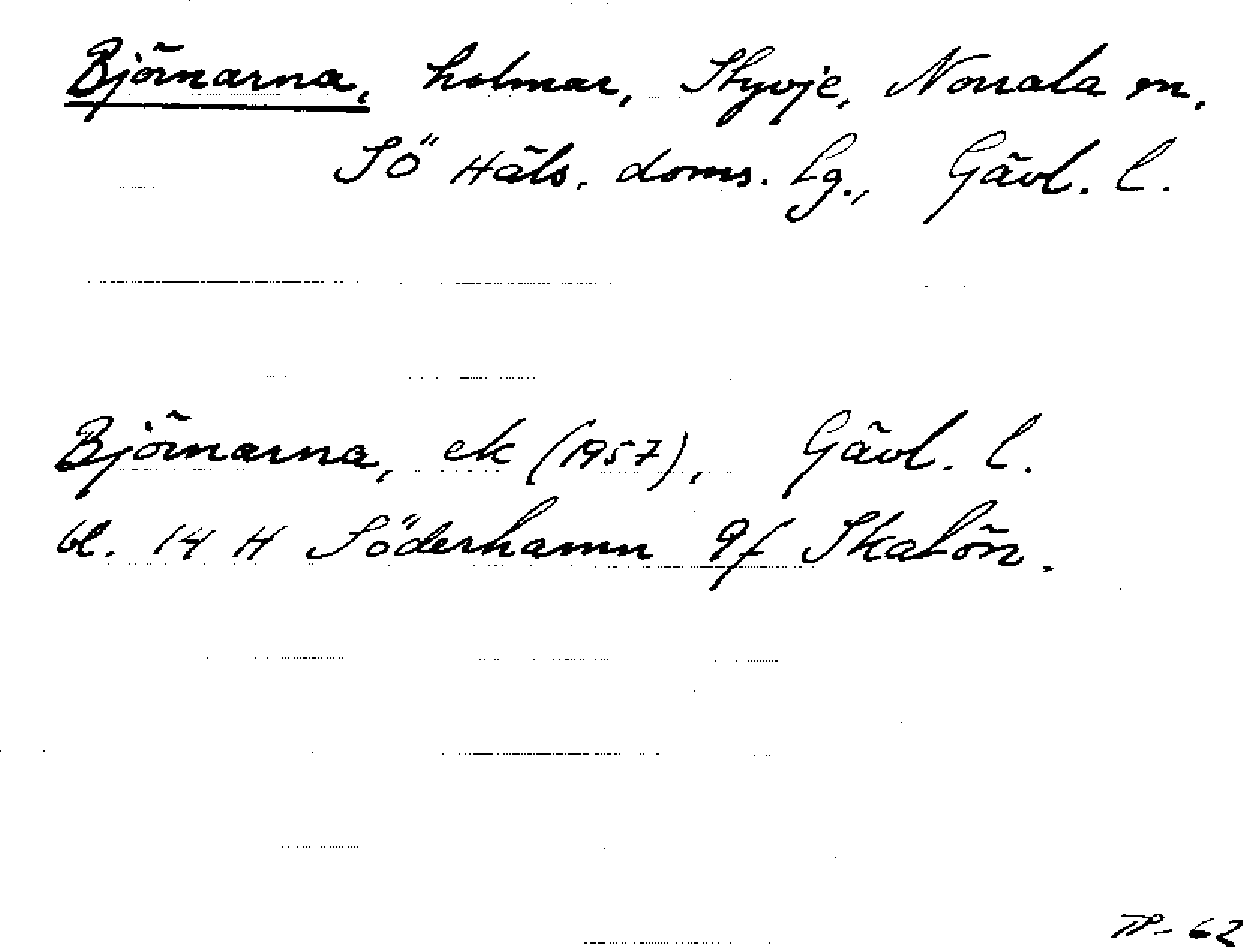 Björnarna, holmar, Styvje, Norrala sn,
Sö Häls. doms. lg., Gävl. l.
Björnarna, ek (1957), Gävl. l.
bl. 14 H Söderhamn 9f Skatön.
TP-62